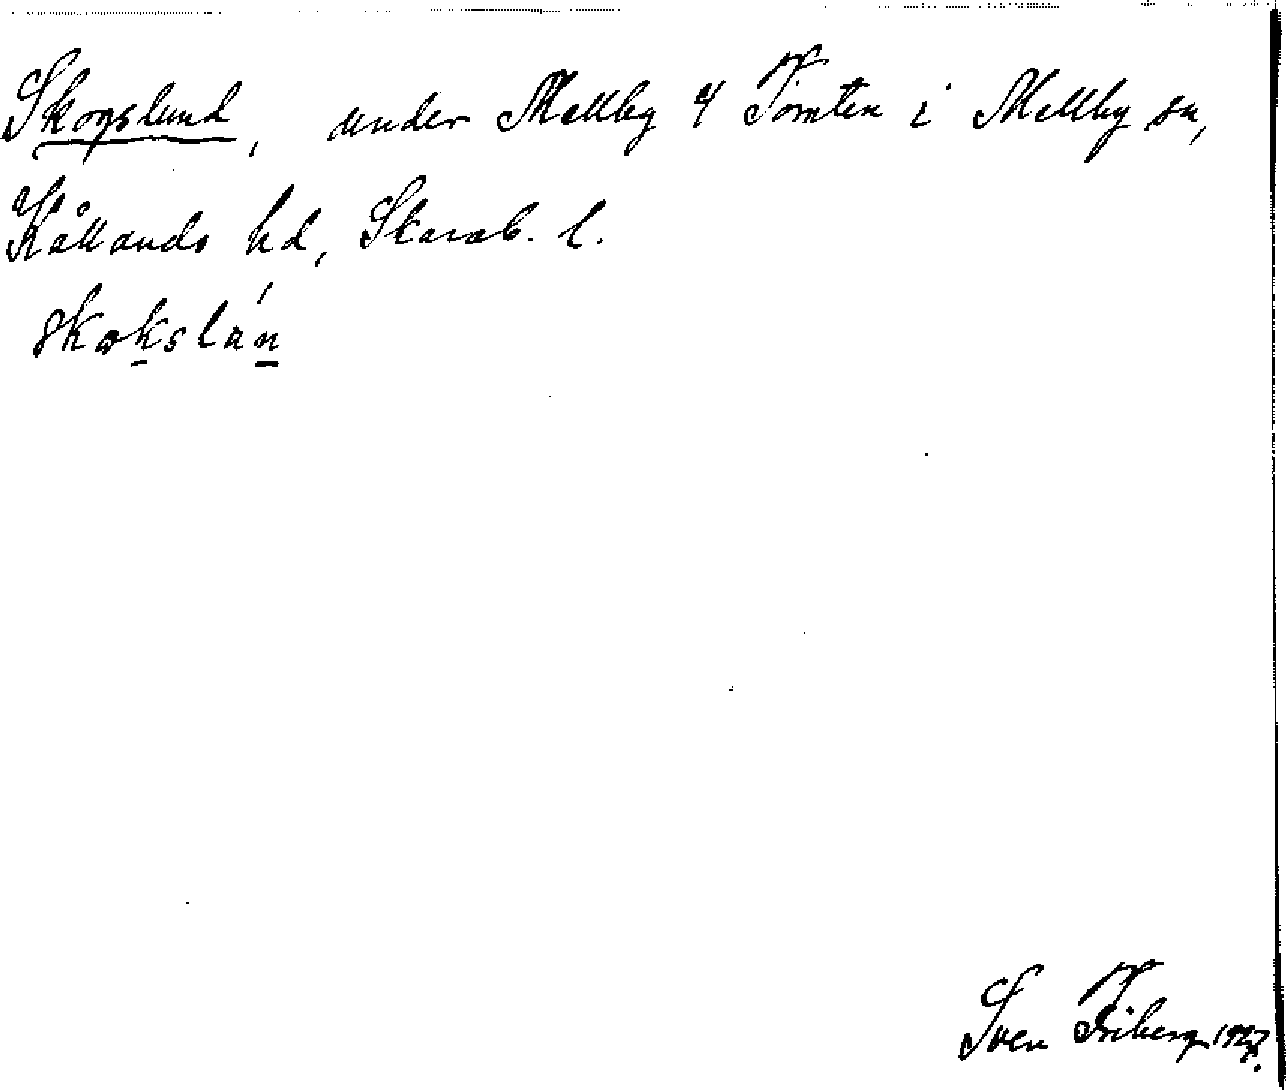 Skogslund, under Mellby 4 Tomten i Mellby sn,
Kållands hd, Skarab. l.
skokslán
Sven Friberg 1927.